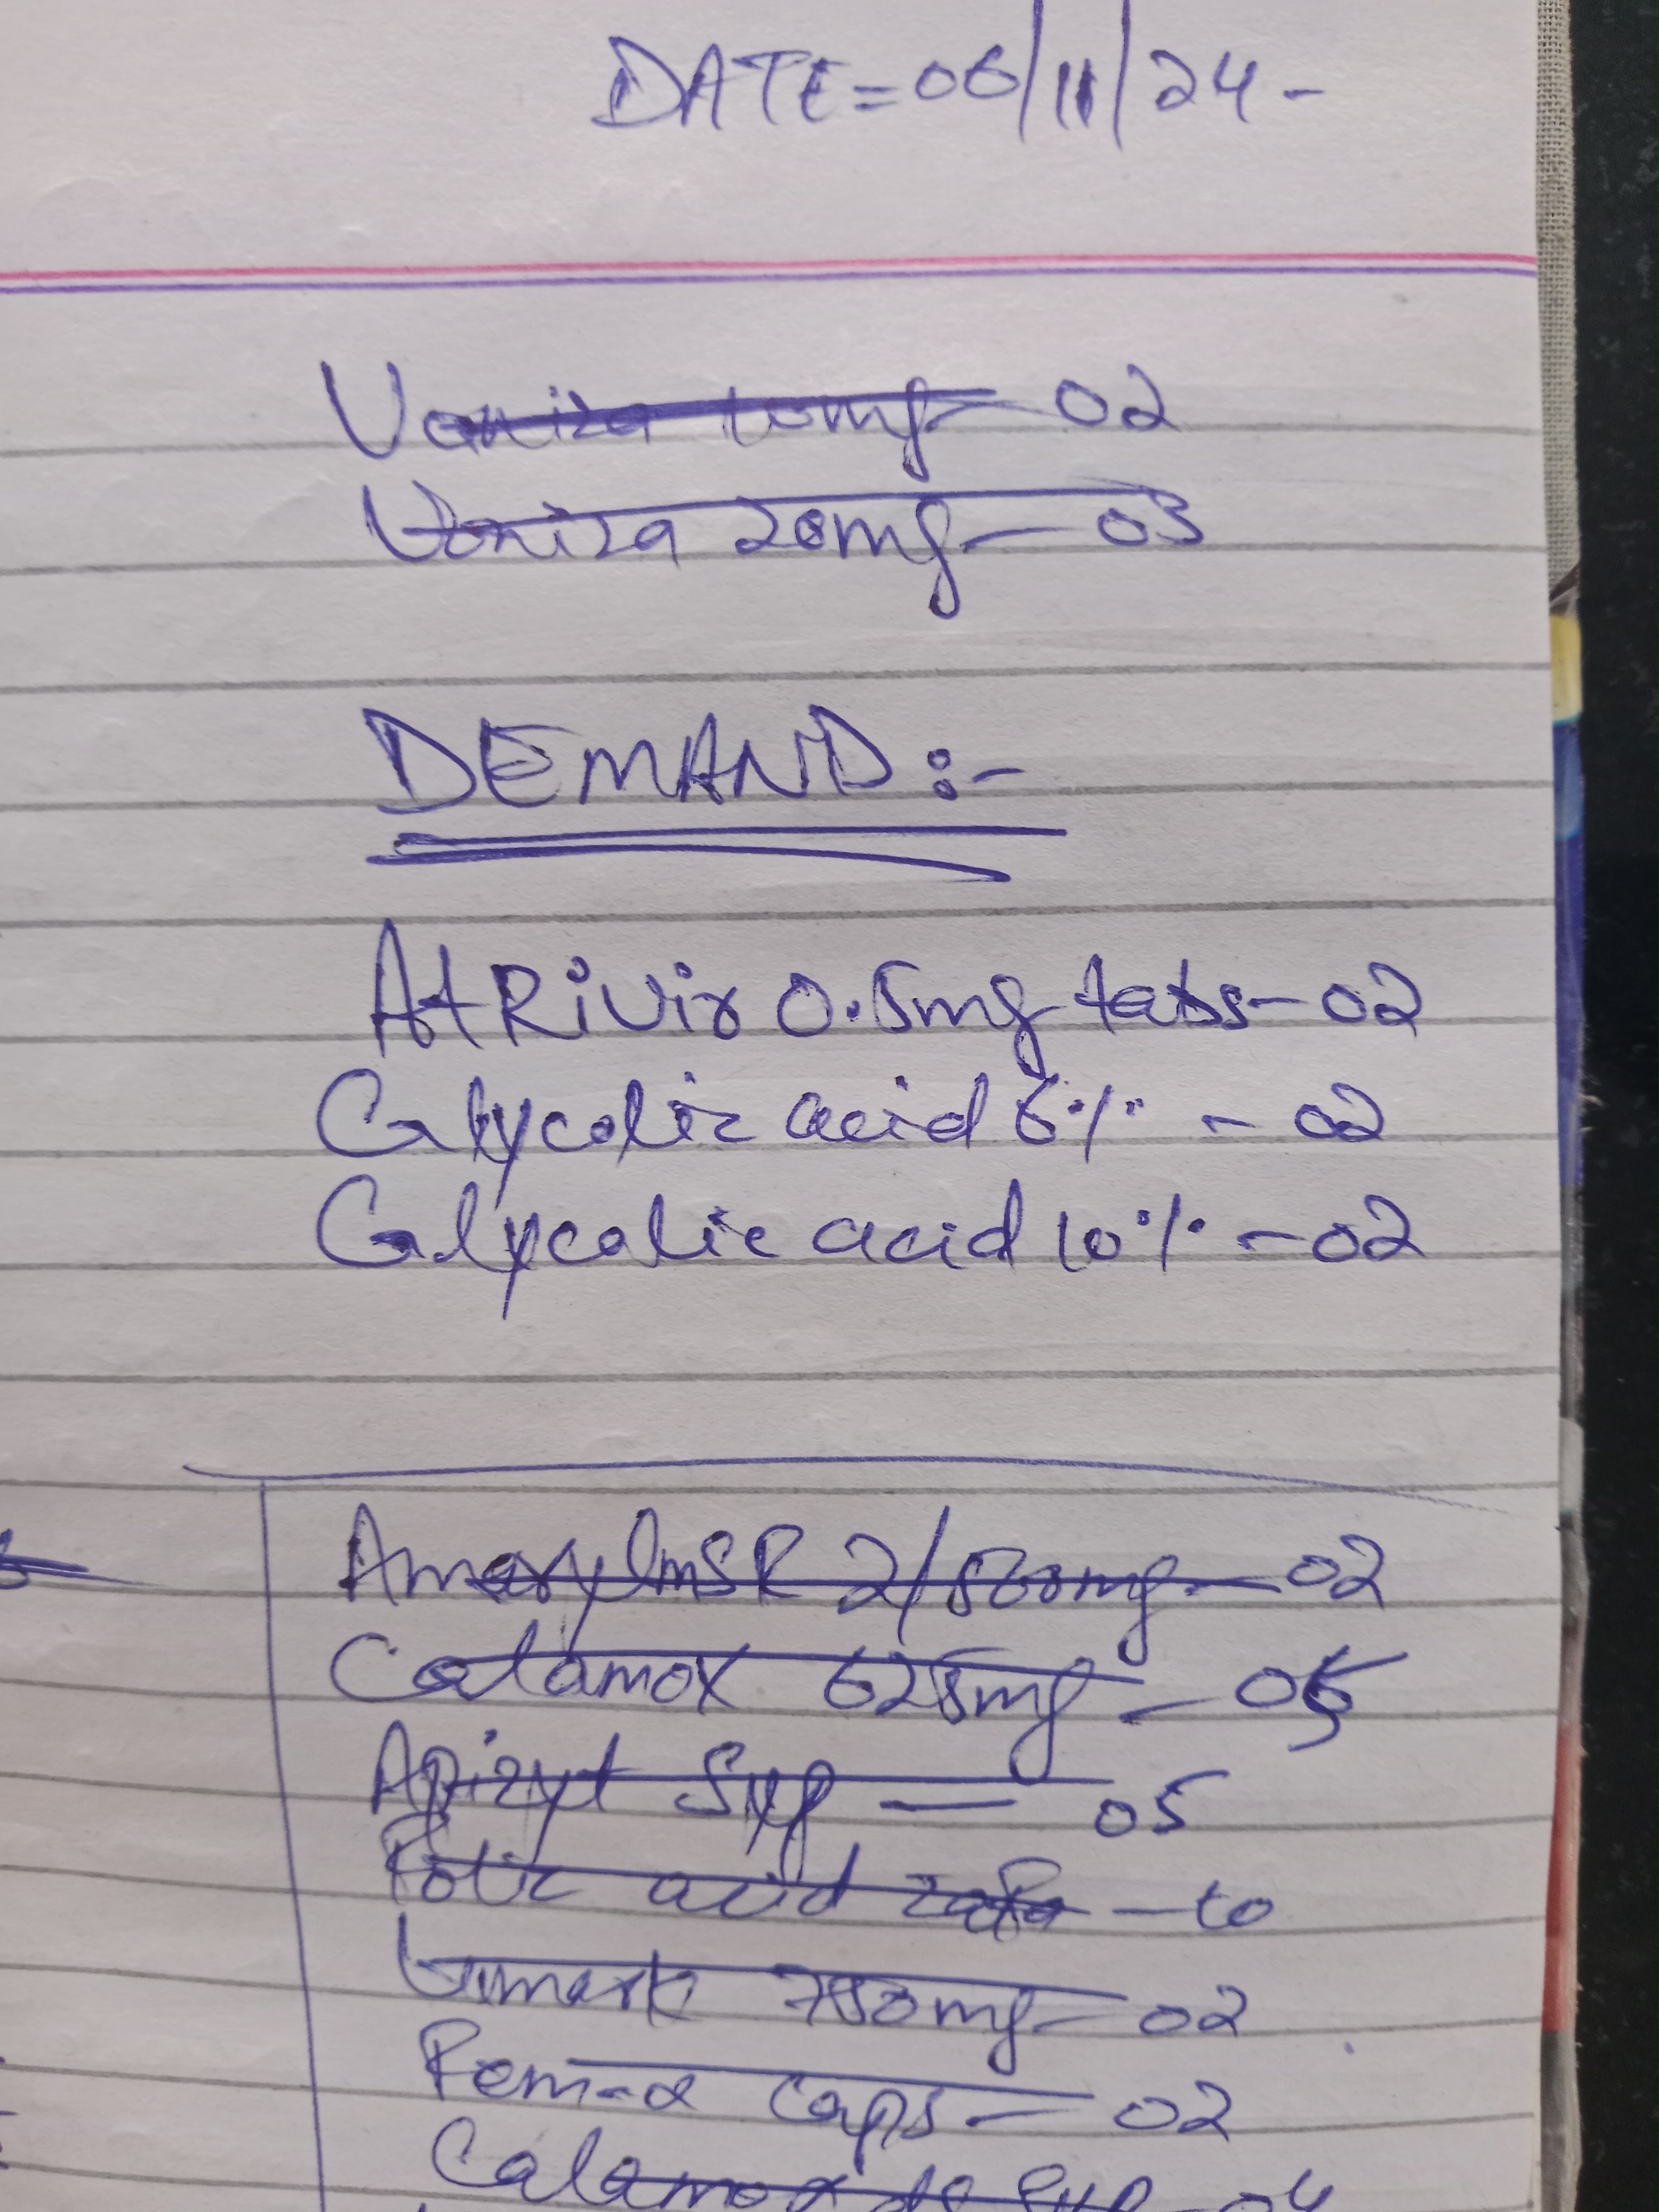 DATE=06/11/24-
Voniza 10mg- 02
Voniza 20mg- 03
DEMAND:-
AtRivir 0.5mg tabs-02
Glycolic acid 6% - 02
Glycolic acid 10% -02
AmarylmSR 2/500mg-02
Calamox 625mg - 05
Apizyt Syp - 05
Folic acid - 10
750mg- 02
Fem-α Caps- 02
Calamox ds syp-04